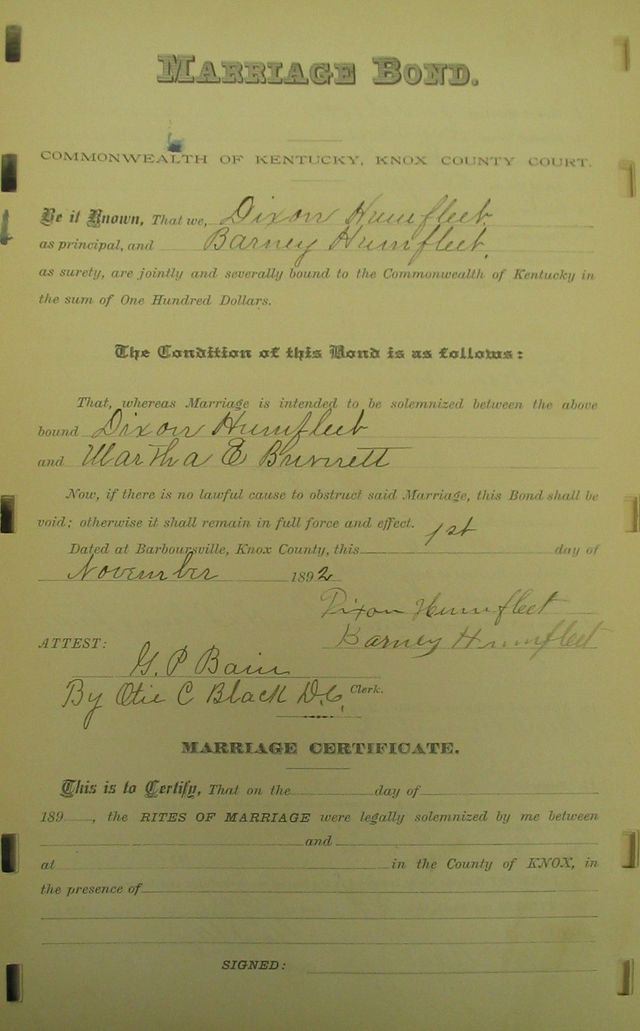 MARRIAGE BOND.
COMMONWEALTH OF KENTUCKY, KNOX COUNTY COURT.
Be it Known, That we, Dixon Humfleet
as principal, and Barney Humfleet,
as surety, are jointly and severally bound to the Commonwealth of Kentucky in
the sum of One Hundred Dollars.
The Condition of this Bond is as follows:
That, whereas Marriage is intended to be solemnized between the above
bound Dixon Humfleet
and Martha E Burnett
Now, if there is no lawful cause to obstruct said Marriage, this Bond shall be
void; otherwise it shall remain in full force and effect.
Dated at Barboursville, Knox County, this 1st day of
November 1892
Dixon Humfleet
Barney Humfleet
ATTEST:
G. P Bain
By Otie C Black D.C. Clerk.
MARRIAGE CERTIFICATE.
This is to Certify, That on the day of
189 , the RITES OF MARRIAGE were legally solemnized by me between
and
at in the County of KNOX, in
the presence of
SIGNED: